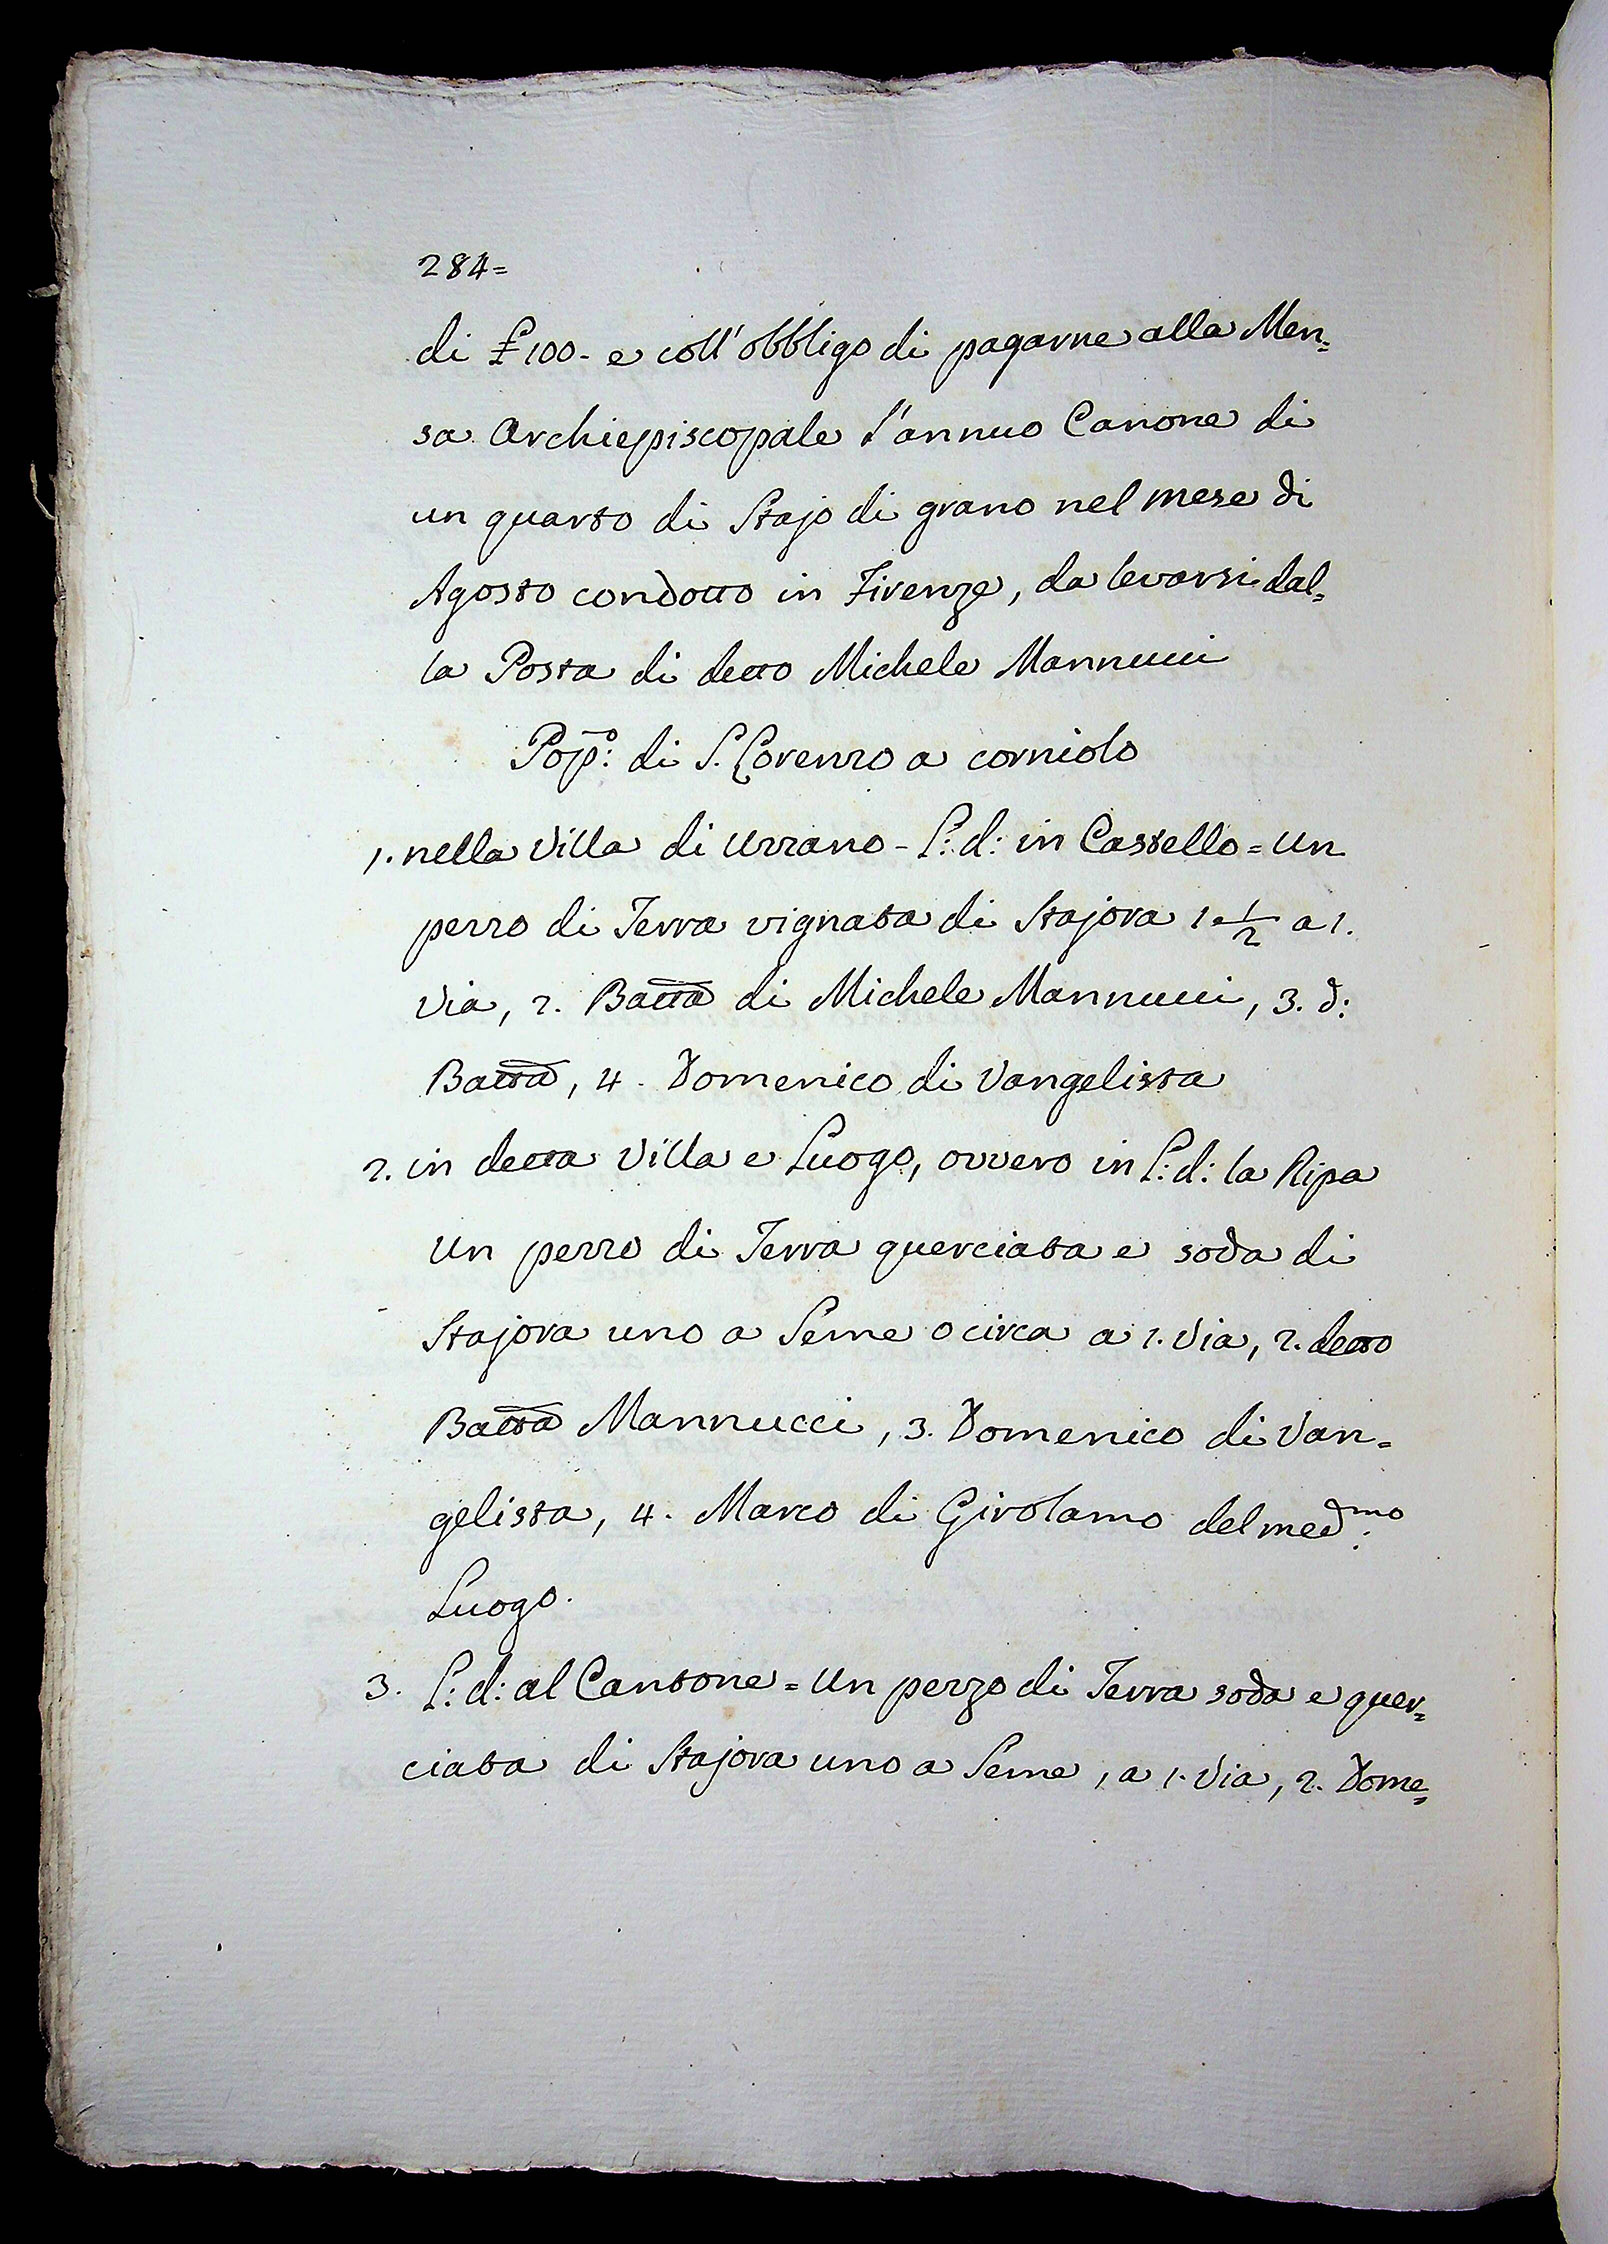 284=
di £ 100- e coll'obbligo di pagarne alla Men=
sa Archiepiscopale l'annuo Canone di
un quarto di Stajo di grano nel mese di
Agosto condotto in Firenze, da levarsi dal=
la Posta di detto Michele Mannucci
Pop:º di S. Lorenzo a corniolo
1. nella Villa di Uzzano - L: d: in Castello = Un
pezzo di Terra vignata di Stajora 1 1/2 a 1.
Via, 2. Batta di Michele Mannucci, 3. d:
Batta, 4. Domenico di Vangelista
2. in detta Villa e Luogo, ovvero in L: d: la Ripa
Un pezzo di Terra querciata e soda di
Stajora uno a Seme o circa a 1. Via, 2. detto
Batta Mannucci, 3. Domenico di Van=
gelista, 4. Marco di Girolamo del med:mo
Luogo.
3. L: d: al Cantone = Un pezzo di Terra soda e quer=
ciata di Stajora uno a Seme, a 1. Via, 2. Dome=